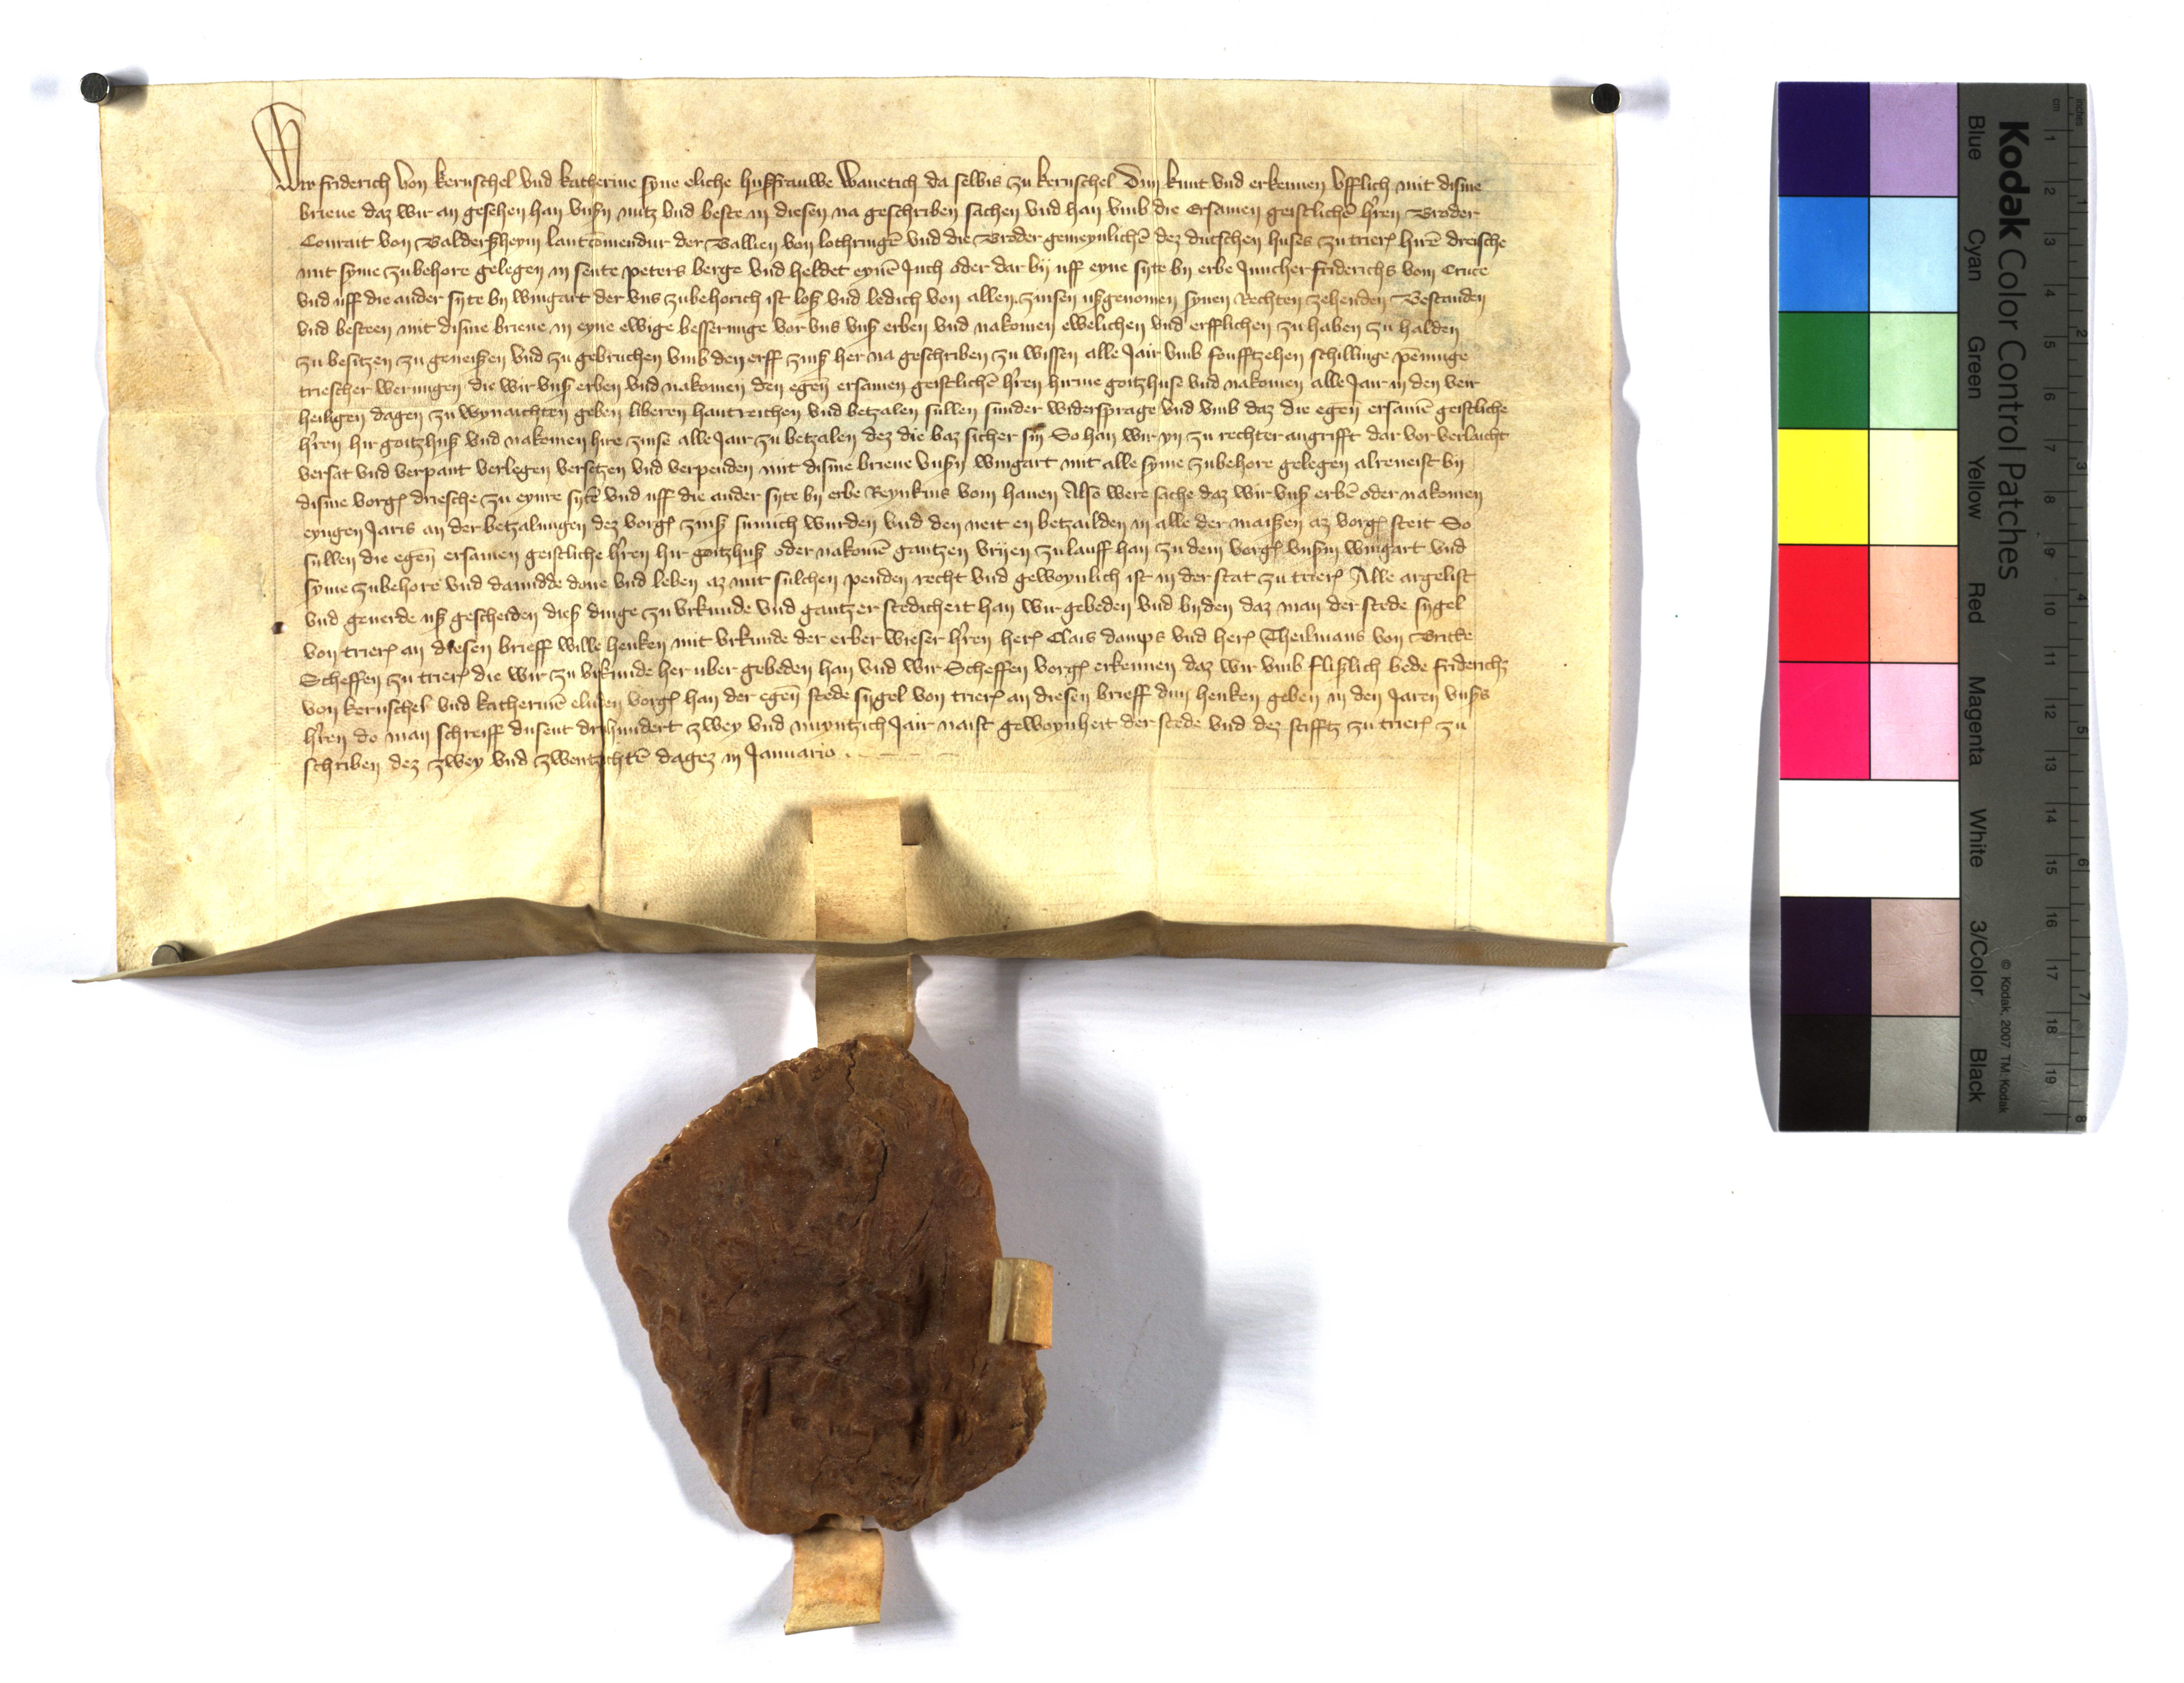 Wir friderich von kernschel vnd katherine syne eliche husfrauwe wanetich da selbis zu kernschel Dun kunt vnd erkennen vfflich mit disme
brieue daz wir an gesehen han vnsn nutz vnd beste in diesen na geschriben sachen vnd han vmb die Ersamen geistlichē hren Broder
Conrait von Baldersheym lantcōmendur der Ballien von lothringē vnd die Broder gemeynlichē dez dutschen huses zu trier hirē driesche
mit syme zubehore gelegen in sente peters berge vnd heldet eynē Juch oder dar bij uff eyne syte bij erbe Juncher friderichs vom Cruce
vnd uff die ander syte bij wingart der vns zubehorich ist loß vnd ledich von allen zinsen ußgenomen synen Rechten zehenden Bestanden
vnd besteen mit disme brieue in eyne ewige besserunge vor vns vnß erben vnd nakomen ewelichen vnd erfflichen zu haben zu halden
zu besitzen zu geneißen vnd zu gebruchen vmb den erff zinß her na geschriben zu wissen alle Jair vmb foufftzehen schillinge pēninge
triescher werungen die wir vnß erben vnd nakomen den egeñ ersamen geistlichē hren hirme goitzhuse vnd nakomen alle Jair in den veir
heiligen dagen zu wynaichten geben liberen hantreichen vnd betzalen sullen sunder widersprage vnd vmb daz die egeñ ersamē geistliche
hren hir goitzhuß vnd nakomen hire zinse alle Jair zu betzalen dez die baz sicher sin So han wir yn zu rechter angrifft dar vor verlaicht
versat vnd verpant verlegen versetzen vnd verpenden mit disme brieue vnsn wingart mit alle syme zubehore gelegen alreneist bij
disme vorg driesche zu eynre sytē vnd uff die ander syte bij erbe Reynkins vom hauen Also were sache daz wir vnß erbē oder nakomen
eyngen Jaris an der betzalungen dez vorg zinß sumich wurden vnd den neit en betzailden in alle der maißen az vorg steit So
sullen die egeñ ersamen geistliche hren hir goitzhuß oder nakomē gantzen vrijen zulauff han zu dem vorg vnsm wingart vnd
syme zubehore vnd damidde done vnd leben az mit sulchen penden recht vnd gewoynlich ist in der stat zu trier Alle argelist
vnd geuerde uß gescheiden dieß dinge zu vrkunde vnd gantzer stedicheit han wir gebeden vnd bijden daz man der stede sygel
von trier an diesen brieff wille henken mit vrkunde der erber wieser hren her Clais damps vnd her Theilmans von Britte
Scheffen zu trier die wir zu vrkunde her uber gebeden han vnd wir Scheffen vorg erkennen daz wir vmb flißlich bede friderichz
von kernschel vnd katherinē eluden vorg han der egeñ stede sygel von trier an diesen brieff dun henken geben in den Jaren vnßs
hren do man schreiff dusent druhundert zwey vnd nuyntzich Jair naist gewoynheit der stede vnd dez stifftz zu trier zu
schriben dez zwey vnd zwentzichtē dagez in Januario .
Kodak Color Control Patches
Blue Cyan Green Yellow Red Magenta White 3/Color Black
© Kodak, 2007 TM: Kodak
cm 1 2 3 4 5 6 7 8 9 10 11 12 13 14 15 16 17 18 19
inches 1 2 3 4 5 6 7 8